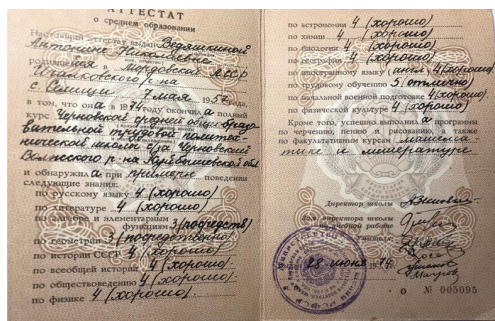 АТТЕСТАТ
о среднем образовании
Настоящий аттестат выдан Ведяшкиной
Антонине Николаевне
родившейся в Мордовской АССР
Ичалковского р-на
с. Селищи 7 мая 1957 года,
в том, что она в 1974 году окончила полный
курс Черновской средней общеобразо
вательной трудовой политех
нической школы с/за Черновский
Волжского р-на Куйбышевской обл.
и обнаружила при примерном поведении
следующие знания:
по русскому языку 4 (хорошо)
по литературе 4 (хорошо)
по алгебре и элементарным
функциям 3 (посредств)
по геометрии 3 (посредственно)
по истории СССР 4 (хорошо)
по всеобщей истории 4 (хорошо)
по обществоведению 4 (хорошо)
по физике 4 (хорошо)
по астрономии 4 (хорошо)
по химии 4 (хорошо)
по биологии 4 (хорошо)
по географии 4 (хорошо)
по иностранному языку (англ) 4 (хорошо)
по трудовому обучению 5 (отлично)
по начальной военной подготовке 4 (хорошо)
по физической культуре 4 (хорошо)
Кроме того, успешно выполнила программу
по черчению, пению и рисованию, а также
по факультативным курсам математике
тике и литературе
Директор школы
Зам. директора школы
по учебной работе
Учителя:
28 июня 1974
№ 005095